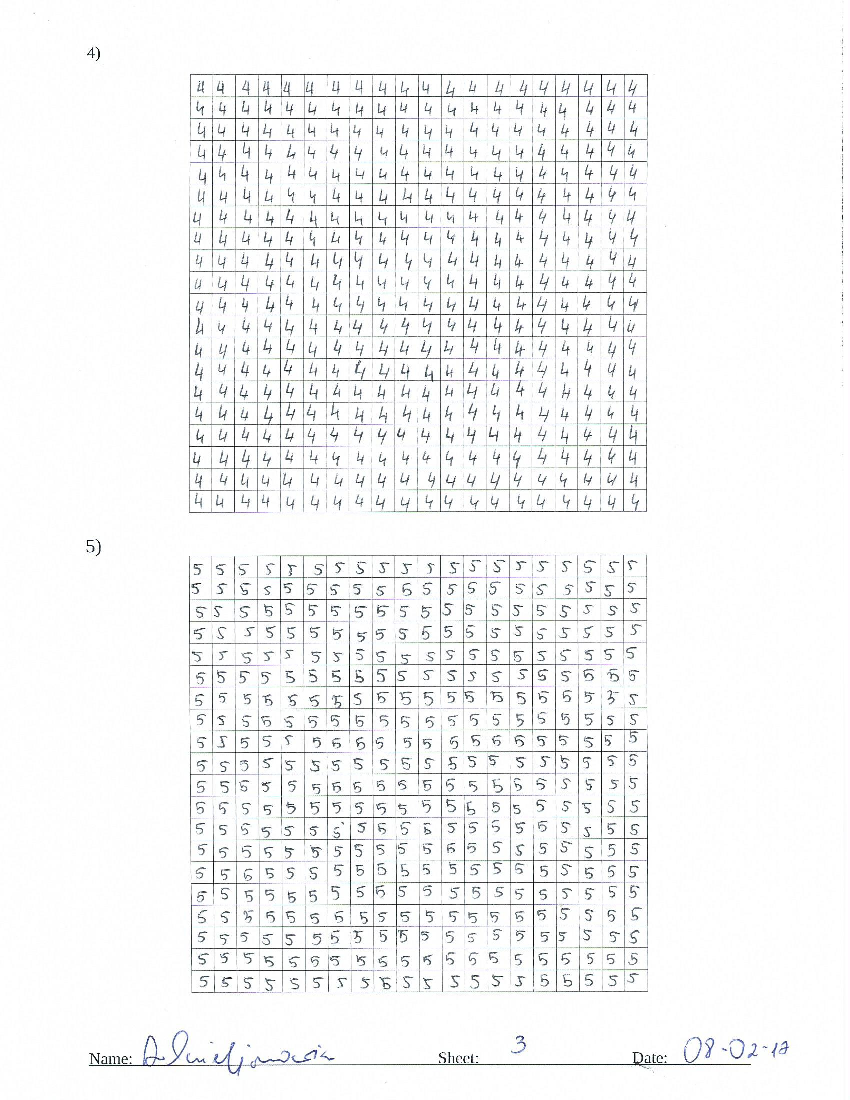 4)
4 4 4 4 4 4 4 4 4 4 4 4 4 4 4 4 4 4 4 4
4 4 4 4 4 4 4 4 4 4 4 4 4 4 4 4 4 4 4 4
4 4 4 4 4 4 4 4 4 4 4 4 4 4 4 4 4 4 4 4
4 4 4 4 4 4 4 4 4 4 4 4 4 4 4 4 4 4 4 4
4 4 4 4 4 4 4 4 4 4 4 4 4 4 4 4 4 4 4 4
4 4 4 4 4 4 4 4 4 4 4 4 4 4 4 4 4 4 4 4
4 4 4 4 4 4 4 4 4 4 4 4 4 4 4 4 4 4 4 4
4 4 4 4 4 4 4 4 4 4 4 4 4 4 4 4 4 4 4 4
4 4 4 4 4 4 4 4 4 4 4 4 4 4 4 4 4 4 4 4
4 4 4 4 4 4 4 4 4 4 4 4 4 4 4 4 4 4 4 4
4 4 4 4 4 4 4 4 4 4 4 4 4 4 4 4 4 4 4 4
4 4 4 4 4 4 4 4 4 4 4 4 4 4 4 4 4 4 4 4
4 4 4 4 4 4 4 4 4 4 4 4 4 4 4 4 4 4 4 4
4 4 4 4 4 4 4 4 4 4 4 4 4 4 4 4 4 4 4 4
4 4 4 4 4 4 4 4 4 4 4 4 4 4 4 4 4 4 4 4
4 4 4 4 4 4 4 4 4 4 4 4 4 4 4 4 4 4 4 4
4 4 4 4 4 4 4 4 4 4 4 4 4 4 4 4 4 4 4 4
4 4 4 4 4 4 4 4 4 4 4 4 4 4 4 4 4 4 4 4
4 4 4 4 4 4 4 4 4 4 4 4 4 4 4 4 4 4 4 4
4 4 4 4 4 4 4 4 4 4 4 4 4 4 4 4 4 4 4 4
5)
5 5 5 5 5 5 5 5 5 5 5 5 5 5 5 5 5 5 5 5
5 5 5 5 5 5 5 5 5 5 5 5 5 5 5 5 5 5 5 5
5 5 5 5 5 5 5 5 5 5 5 5 5 5 5 5 5 5 5 5
5 5 5 5 5 5 5 5 5 5 5 5 5 5 5 5 5 5 5 5
5 5 5 5 5 5 5 5 5 5 5 5 5 5 5 5 5 5 5 5
5 5 5 5 5 5 5 5 5 5 5 5 5 5 5 5 5 5 5 5
5 5 5 5 5 5 5 5 5 5 5 5 5 5 5 5 5 5 5 5
5 5 5 5 5 5 5 5 5 5 5 5 5 5 5 5 5 5 5 5
5 5 5 5 5 5 5 5 5 5 5 5 5 5 5 5 5 5 5 5
5 5 5 5 5 5 5 5 5 5 5 5 5 5 5 5 5 5 5 5
5 5 5 5 5 5 5 5 5 5 5 5 5 5 5 5 5 5 5 5
5 5 5 5 5 5 5 5 5 5 5 5 5 5 5 5 5 5 5 5
5 5 5 5 5 5 5 5 5 5 5 5 5 5 5 5 5 5 5 5
5 5 5 5 5 5 5 5 5 5 5 5 5 5 5 5 5 5 5 5
5 5 5 5 5 5 5 5 5 5 5 5 5 5 5 5 5 5 5 5
5 5 5 5 5 5 5 5 5 5 5 5 5 5 5 5 5 5 5 5
5 5 5 5 5 5 5 5 5 5 5 5 5 5 5 5 5 5 5 5
5 5 5 5 5 5 5 5 5 5 5 5 5 5 5 5 5 5 5 5
5 5 5 5 5 5 5 5 5 5 5 5 5 5 5 5 5 5 5 5
5 5 5 5 5 5 5 5 5 5 5 5 5 5 5 5 5 5 5 5
Name: Sheet: 3 Date: 08-02-17